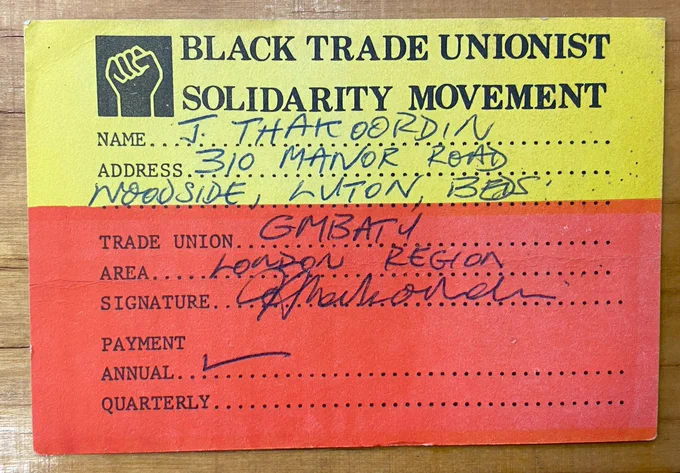 BLACK TRADE UNIONIST
SOLIDARITY MOVEMENT
NAME... J. THAKOORDIN
ADDRESS. 310 MANOR ROAD
WOODSIDE, LUTON, BEDS.
TRADE UNION.. GMBATU
AREA..... LONDON REGION
SIGNATURE.. J Thakoordin
PAYMENT
ANNUAL.. ✓
QUARTERLY